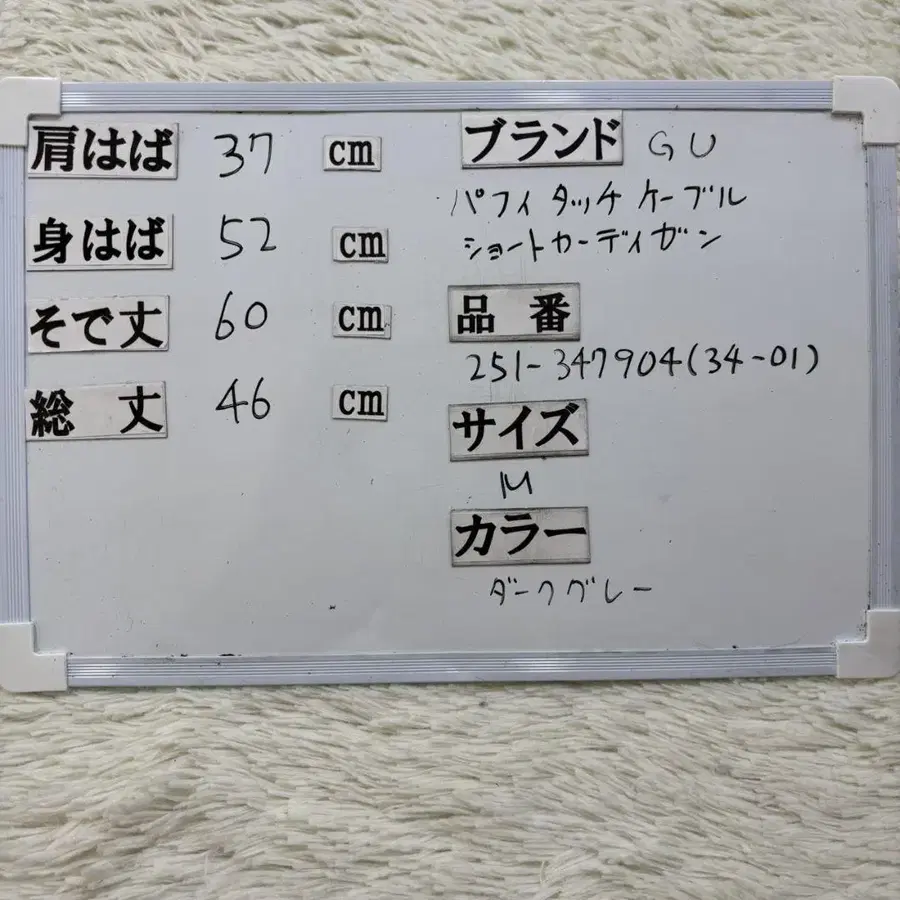 肩はば 37 cm
身はば 52 cm
そで丈 60 cm
総 丈 46 cm
ブランド GU
パフィタッチケーブル
ショートカーディガン
品 番
251-347904(34-01)
サイズ
M
カラー
ダークグレー